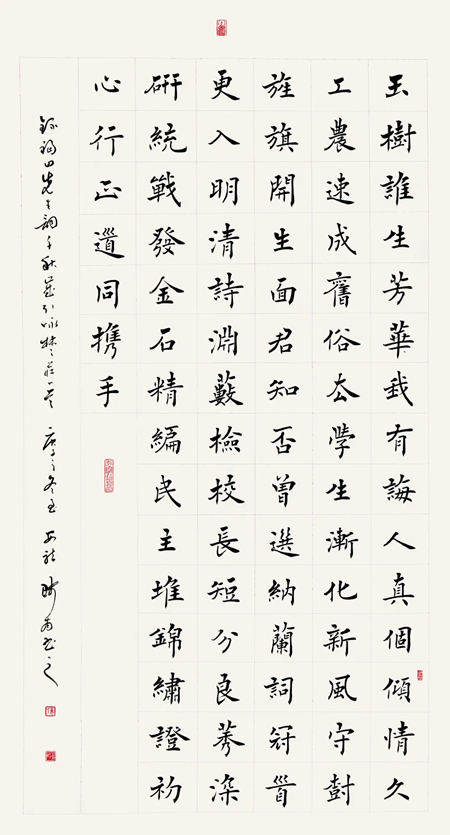 玉樹誰生芳華我有誨人真個傾情久
工農速成舊俗厺學生漸化新風守
旌旗開生面君知否曾選納蘭詞冠
更入明清詩淵藪檢校長短分良莠深
研統戰發金石精編民主堆錦繡證初
心行正道同携手
先生詞千秋歲引 庚子之冬